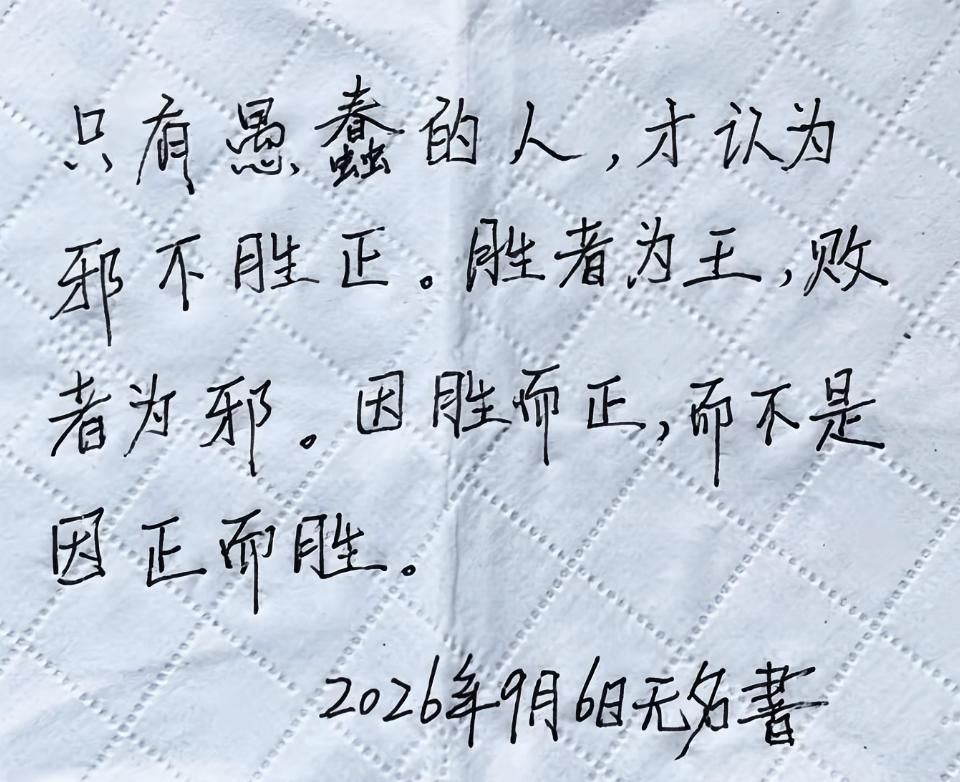 只有愚蠢的人,才认为
邪不胜正。胜者为王,败
者为邪。因胜而正,而不是
因正而胜。
2026年9月6日无名書